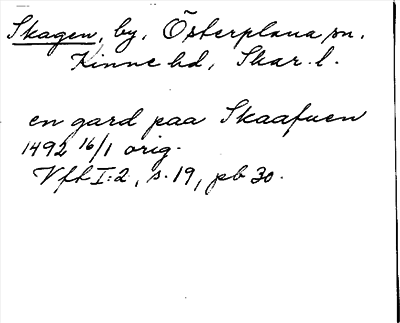 Skagen, by, Österplana sn.
Kinne hd, Skar. l.
en gard paa Skaafuen
1492 16/1 orig.
Vfh I:2, s. 19, pb 30.